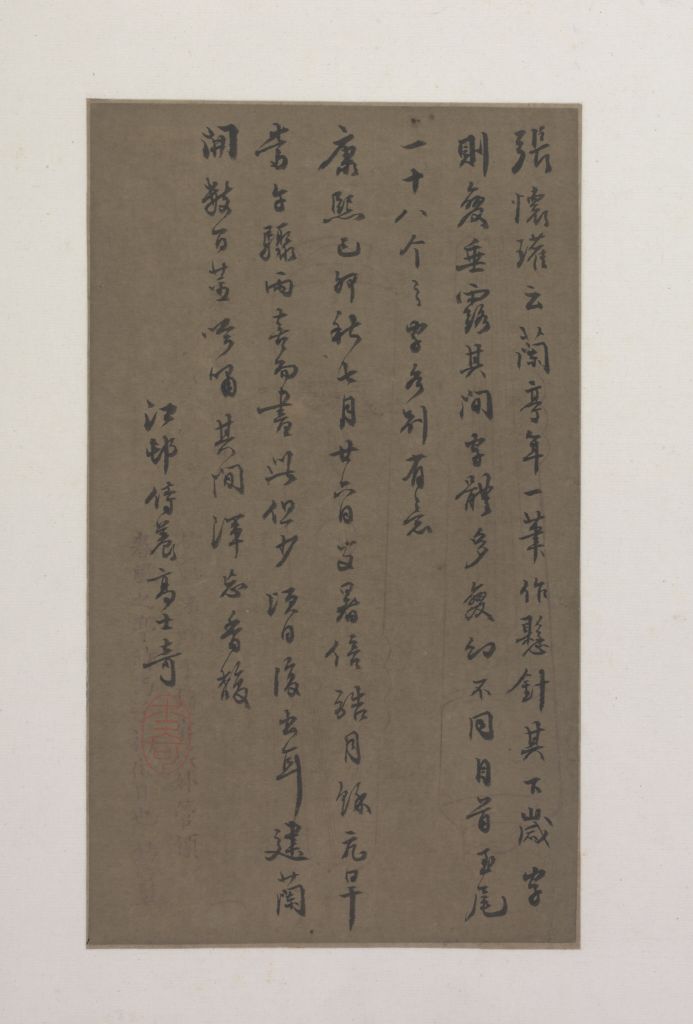 張懷瓘云蘭亭年一筆作懸針其下歲字
則變垂露其間字體多變幻不同自首至尾
一十八个之字各別有意
康熙己卯秋七月廿六日暑倍酷月餘亢旱
當午驟雨喜而書此但少頃日復出耳建蘭
開數百莖吟嘯其間渾忘香馥
江邨傳養高士奇